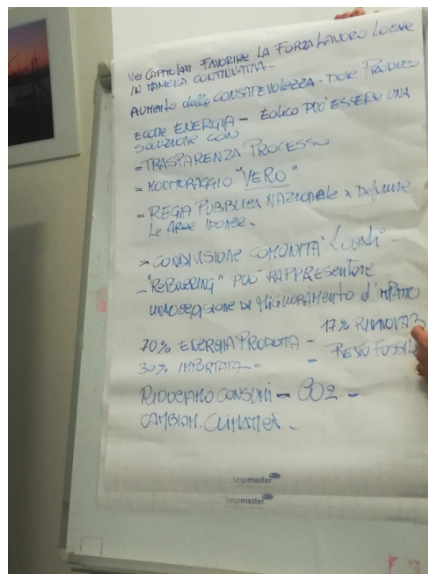 Nei Capitolati FAVORIRE LA FORZA LAVORO LOCALE
IN MANIERA CONTINUATIVA -
AUMENTO della CONSAPEVOLEZZA. DOVE PRODUCO
ENERGIA - EOLICO PUÒ ESSERE UNA
SOLUZIONE CON
- TRASPARENZA PROCESSO
- MONITORAGGIO "VERO"
- REGIA PUBBLICA NAZIONALE x Definire
le AREE IDONEE.
- CONDIVISIONE COMUNITÀ LOCALI -
- "REPOWERING" PUÒ RAPPRESENTARE
UN'OCCASIONE DI MIGLIORAMENTO d'IMPATTO
70% ENERGIA PRODOTTA - 17% RINNOVAB
30% IMPORTATA - - RESTO FOSSIL
RIDUCIAMO CONSUMI - CO2 -
CAMBIAM. CLIMATICI -
Legamaster
Legamaster